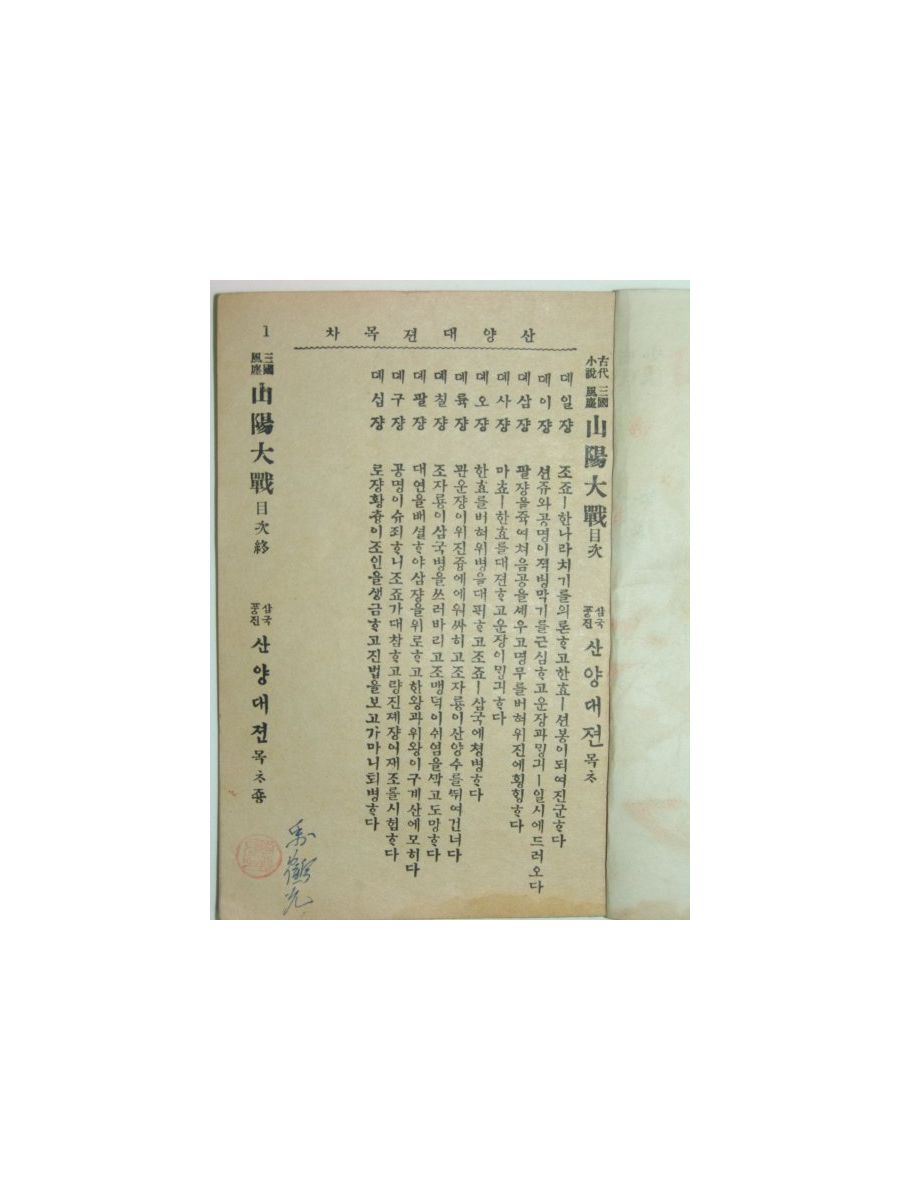 산양대젼목차
1
古代小說 三國風塵 山陽大戰 目次 삼국풍진 산양대젼 목ᄎᆞ
뎨일쟝 조죠ㅣ한나라치기를의론ᄒᆞ고한효ㅣ션봉이되여진군ᄒᆞ다
뎨이쟝 션쥬와공명이젹병막기를근심ᄒᆞ고운장과밍긔ㅣ일시에드러오다
뎨삼쟝 팔쟝을쥭여쳐음공을셰우고명무를버혀위진에횡힝ᄒᆞ다
뎨사쟝 마쵸ㅣ한효를대젼ᄒᆞ고운장이밍긔ᄒᆞ다
뎨오쟝 한효를버혀위병을대퓌ᄒᆞ고조죠ㅣ삼국에쳥병ᄒᆞ다
뎨륙쟝 관운쟝이위진즁에에워싸히고조자룡이산양수를뛰여건너다
뎨칠쟝 조자룡이삼국병을쓰러바리고조맹덕이쉬염을싹고도망ᄒᆞ다
뎨팔쟝 대연을배셜ᄒᆞ야삼쟝을위로ᄒᆞ고한왕과위왕이구계산에모히다
뎨구쟝 공명이슈죄ᄒᆞ니조죠가대참ᄒᆞ고량진졔쟝이재조를시험ᄒᆞ다
뎨십쟝 로쟝황츙이조인을생금ᄒᆞ고진법을보고가마니퇴병ᄒᆞ다
三國風塵 山陽大戰 目次終 삼국풍진 산양대젼 목ᄎᆞ죵